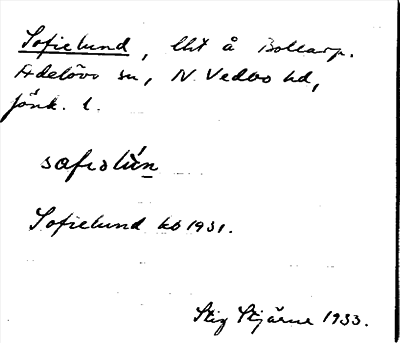 Sofielund, lht å Bollarp.
Adelövs sn, N. Vedbo hd,
Jönk. l.
sofislùn
Sofielund kb 1931.
Stig Stjärne 1933.